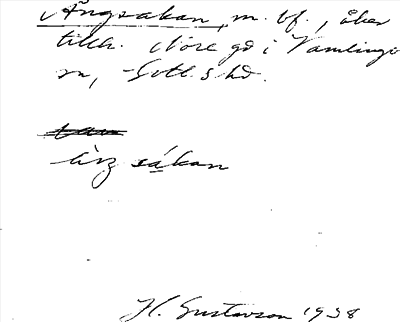 Ängsåkan, m. bf., åker
tillh. Nore gd i Vamlingbo
sn, Gotl. S hd.
ä̀ŋ såkan
H. Gustavson 1938